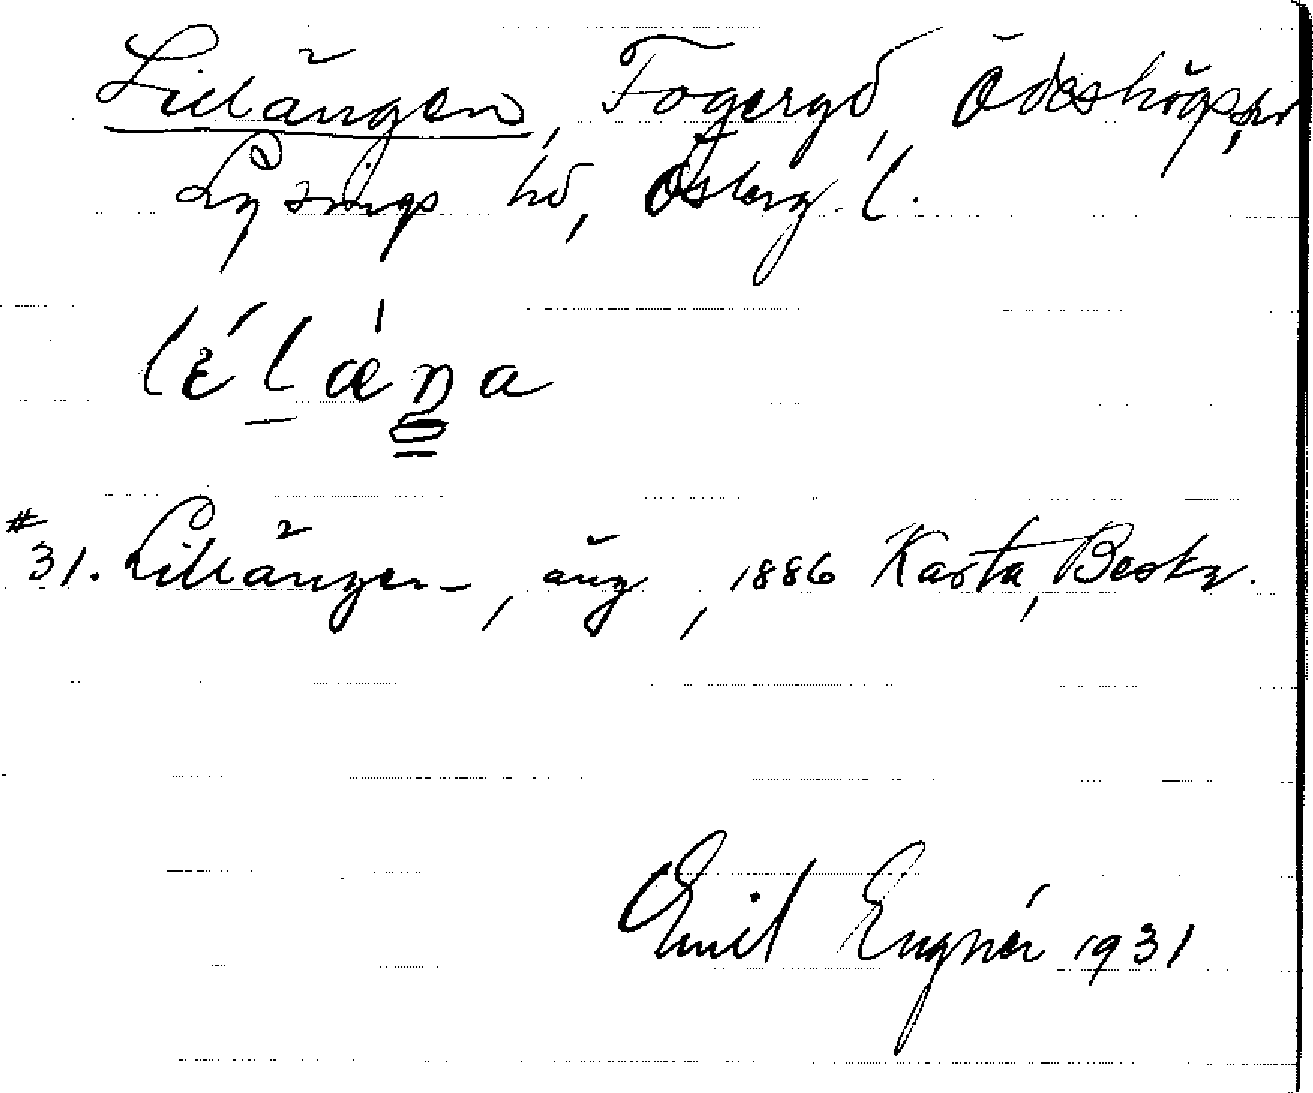 Lillängen, Fogeryd, Ödeshögs sn
Lysings hd, Österg. l.
lɛ́læŋa
#31. Lillängen, äng, 1886 Karta, Beskr.
Emil Engnér 1931